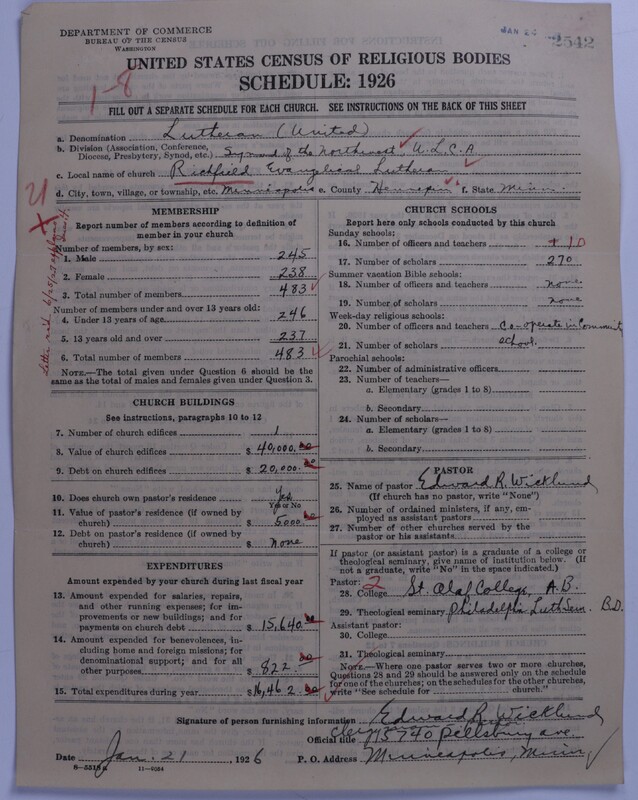 DEPARTMENT OF COMMERCE
BUREAU OF THE CENSUS
WASHINGTON
JAN 2
2542
UNITED STATES CENSUS OF RELIGIOUS BODIES
SCHEDULE: 1926
1-8
FILL OUT A SEPARATE SCHEDULE FOR EACH CHURCH. SEE INSTRUCTIONS ON THE BACK OF THIS SHEET
a. Denomination Lutheran (United)
b. Division (Association, Conference, Diocese, Presbytery, Synod, etc.) Synod of the Northwest, U.L.C.A
c. Local name of church Richfield Evangelical Lutheran
d. City, town, village, or township, etc. Minneapolis e. County Hennepin f. State Minn.
MEMBERSHIP
Report number of members according to definition of
member in your church
Number of members, by sex:
1. Male 245
2. Female 238
3. Total number of members 483
Number of members under and over 13 years old:
4. Under 13 years of age 246
5. 13 years old and over 237
6. Total number of members 483
NOTE.—The total given under Question 6 should be
same as the total of males and females given under Question 3.
CHURCH BUILDINGS
See instructions, paragraphs 10 to 12
7. Number of church edifices 1
8. Value of church edifices $ 40,000.00
9. Debt on church edifices $ 20,000.00
10. Does church own pastor's residence Yes
Yes or No
11. Value of pastor's residence (if owned by
church) $ 5000.00
12. Debt on pastor's residence (if owned by
church) $ None
EXPENDITURES
Amount expended by your church during last fiscal year
13. Amount expended for salaries, repairs,
and other running expenses; for im-
provements or new buildings; and for
payments on church debt $ 15,640.00
14. Amount expended for benevolences, in-
cluding home and foreign missions; for
denominational support; and for all
other purposes $ 822.00
15. Total expenditures during year $ 16,462.00
CHURCH SCHOOLS
Report here only schools conducted by this church
Sunday schools:
16. Number of officers and teachers 10
17. Number of scholars 270
Summer vacation Bible schools:
18. Number of officers and teachers none
19. Number of scholars none
Week-day religious schools:
20. Number of officers and teachers Co-operate in Community
21. Number of scholars school.
Parochial schools:
22. Number of administrative officers
23. Number of teachers—
a. Elementary (grades 1 to 8)
b. Secondary
24. Number of scholars—
a. Elementary (grades 1 to 8)
b. Secondary
PASTOR
25. Name of pastor Edward R. Wicklund
(If church has no pastor, write "None")
26. Number of ordained ministers, if any, em-
ployed as assistant pastors
27. Number of other churches served by the
pastor or his assistants
If pastor (or assistant pastor) is a graduate of a college or
theological seminary, give name of institution below. (If
not a graduate, write "No" in the space indicated.)
Pastor: 2
28. College St. Olaf College, A.B.
29. Theological seminary Philadelphia Luth Sem. B.D.
Assistant pastor:
30. College
31. Theological seminary
NOTE.—Where one pastor serves two or more churches,
Questions 28 and 29 should be answered only on the schedule
for one of the churches; on the schedules for the other churches,
write "See schedule for church."
Signature of person furnishing information Edward R. Wicklund
Official title Clergy 5740 Pillsbury ave.
Date Jan. 21, 1926 P. O. Address Minneapolis, Minn.
8-5515a 11-9064